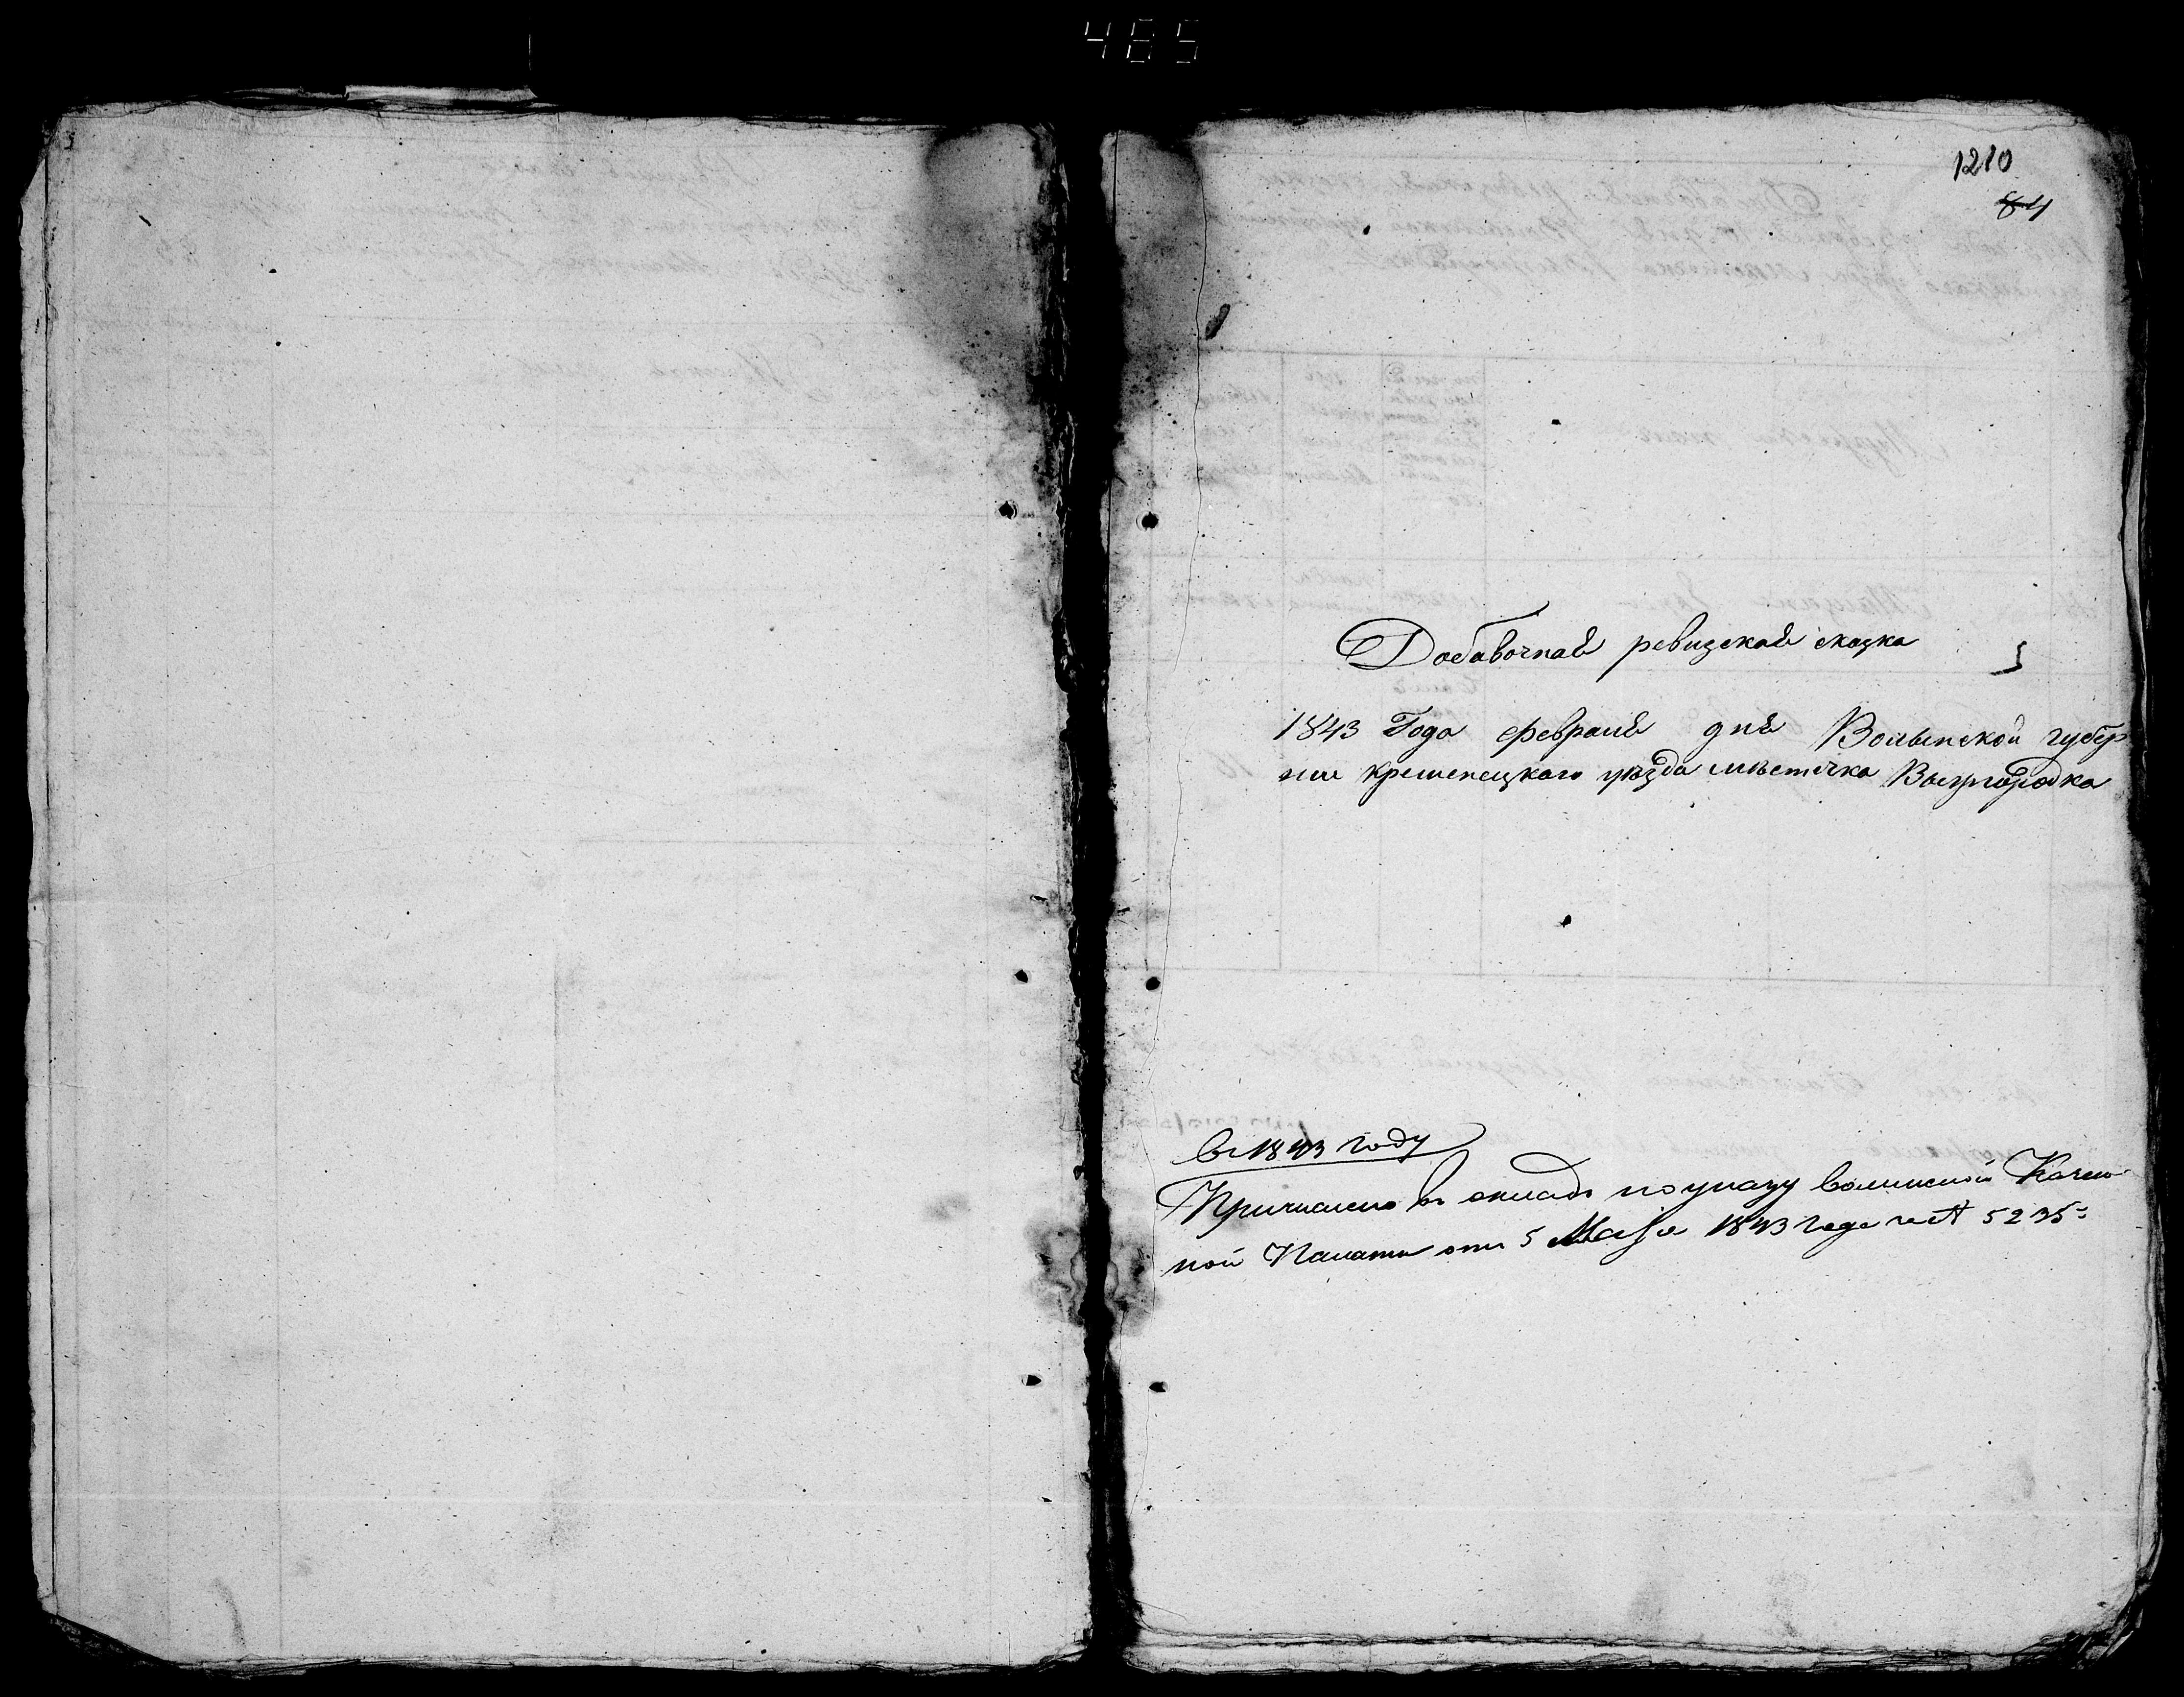 465
1210
84
Добавочная ревизская сказка
1843 Года февраля дня Волынской губер
нии кременецкого уѣзда мѣстечка Вышгородка
в 1843 году
Причислено в окладъ по указу волынской Казен
ной Палаты отъ 5 Маја 1843 года за № 5235